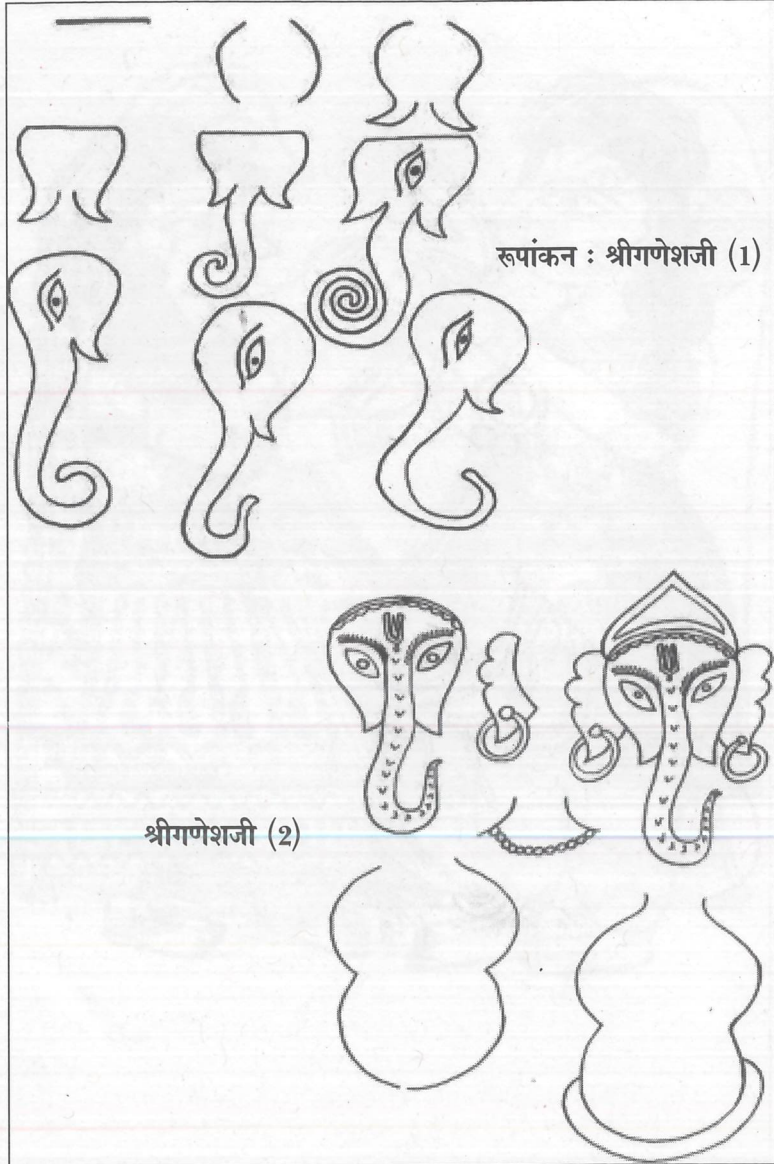 रूपांकन : श्रीगणेशजी (1)
श्रीगणेशजी (2)